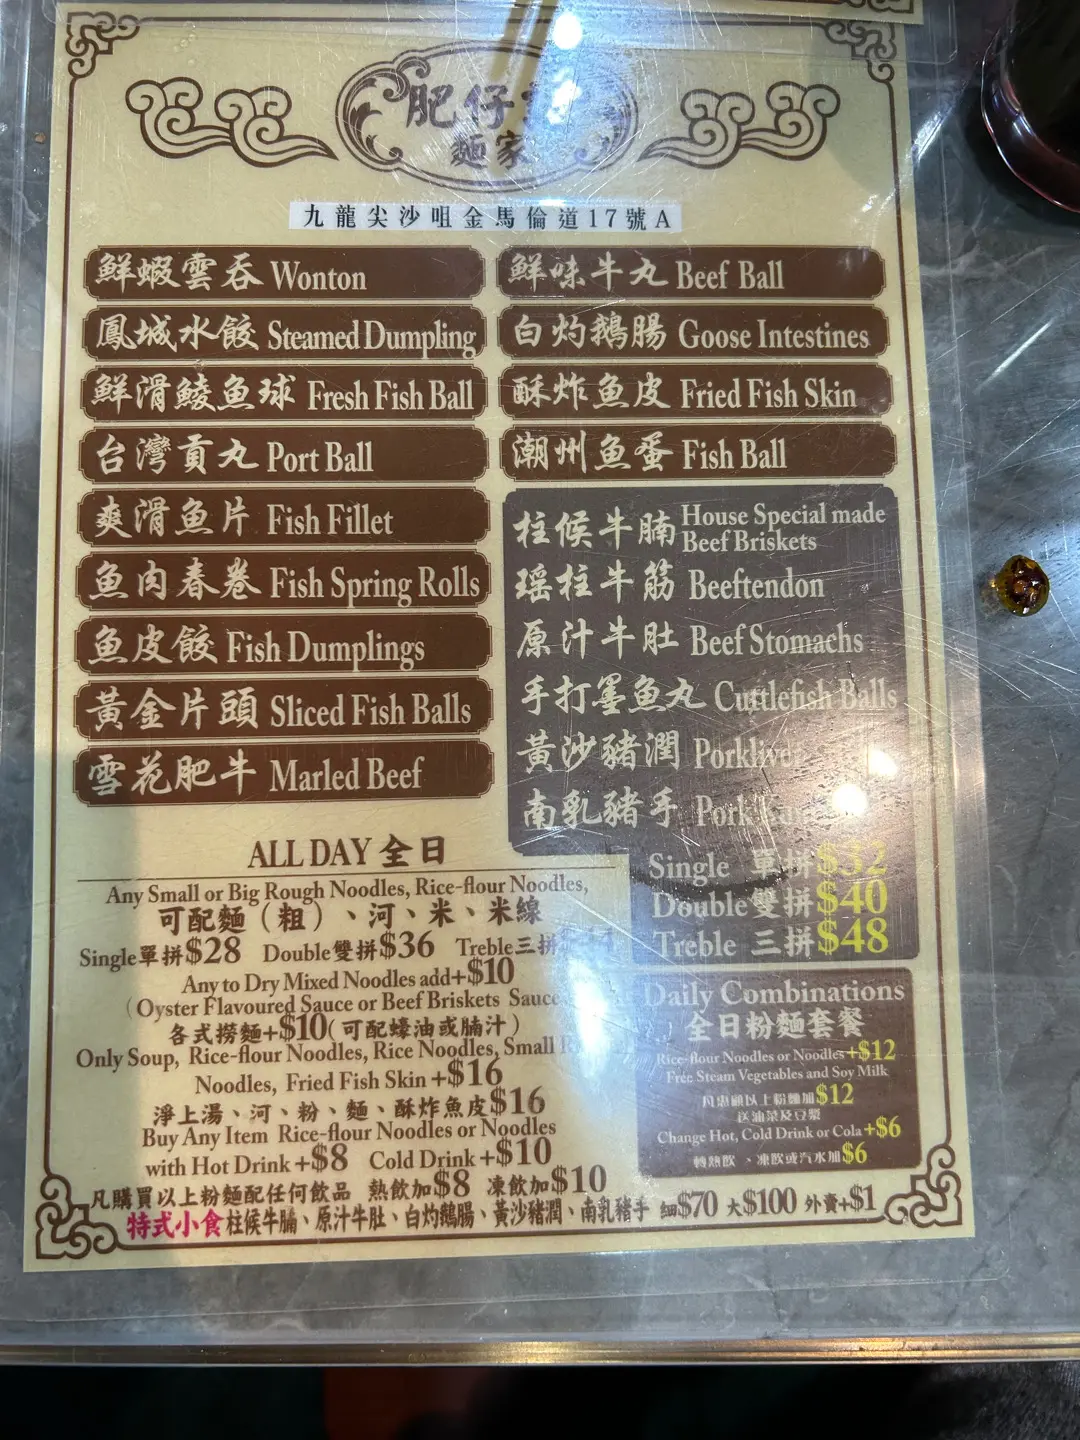 肥仔
麵家
九龍尖沙咀金馬倫道17號A
鮮蝦雲吞 Wonton
鳳城水餃 Steamed Dumpling
鮮滑鯪魚球 Fresh Fish Ball
台灣貢丸 Port Ball
爽滑魚片 Fish Fillet
魚肉春卷 Fish Spring Rolls
魚皮餃 Fish Dumplings
黃金片頭 Sliced Fish Balls
雪花肥牛 Marled Beef
鮮味牛丸 Beef Ball
白灼鵝腸 Goose Intestines
酥炸魚皮 Fried Fish Skin
潮州魚蛋 Fish Ball
柱候牛腩 House Special made
Beef Briskets
瑶柱牛筋 Beeftendon
原汁牛肚 Beef Stomachs
手打墨魚丸 Cuttlefish Balls
黃沙豬潤 Porkliver
南乳豬手 Pork
Single 單拼$32
Double雙拼$40
Treble 三拼$48
ALL DAY 全日
Any Small or Big Rough Noodles, Rice-flour Noodles,
可配麵（粗）、河、米、米線
Single單拼$28 Double雙拼$36 Treble三拼
Any to Dry Mixed Noodles add+$10
(Oyster Flavoured Sauce or Beef Briskets Sauce
各式撈麵+$10(可配蠔油或腩汁)
Only Soup, Rice-flour Noodles, Rice Noodles, Small
Noodles, Fried Fish Skin +$16
淨上湯、河、粉、麵、酥炸魚皮$16
Buy Any Item Rice-flour Noodles or Noodles
with Hot Drink +$8 Cold Drink +$10
凡購買以上粉麵配任何飲品 熱飲加$8 凍飲加$10
Daily Combinations
全日粉麵套餐
Rice-flour Noodles or Noodles+$12
Free Steam Vegetables and Soy Milk
凡惠顧以上粉麵加$12
送油菜及豆漿
Change Hot, Cold Drink or Cola +$6
轉熱飲、凍飲或汽水加$6
特式小食柱候牛腩、原汁牛肚、白灼鵝腸、黃沙豬潤、南乳豬手 細$70 大$100 外賣+$1